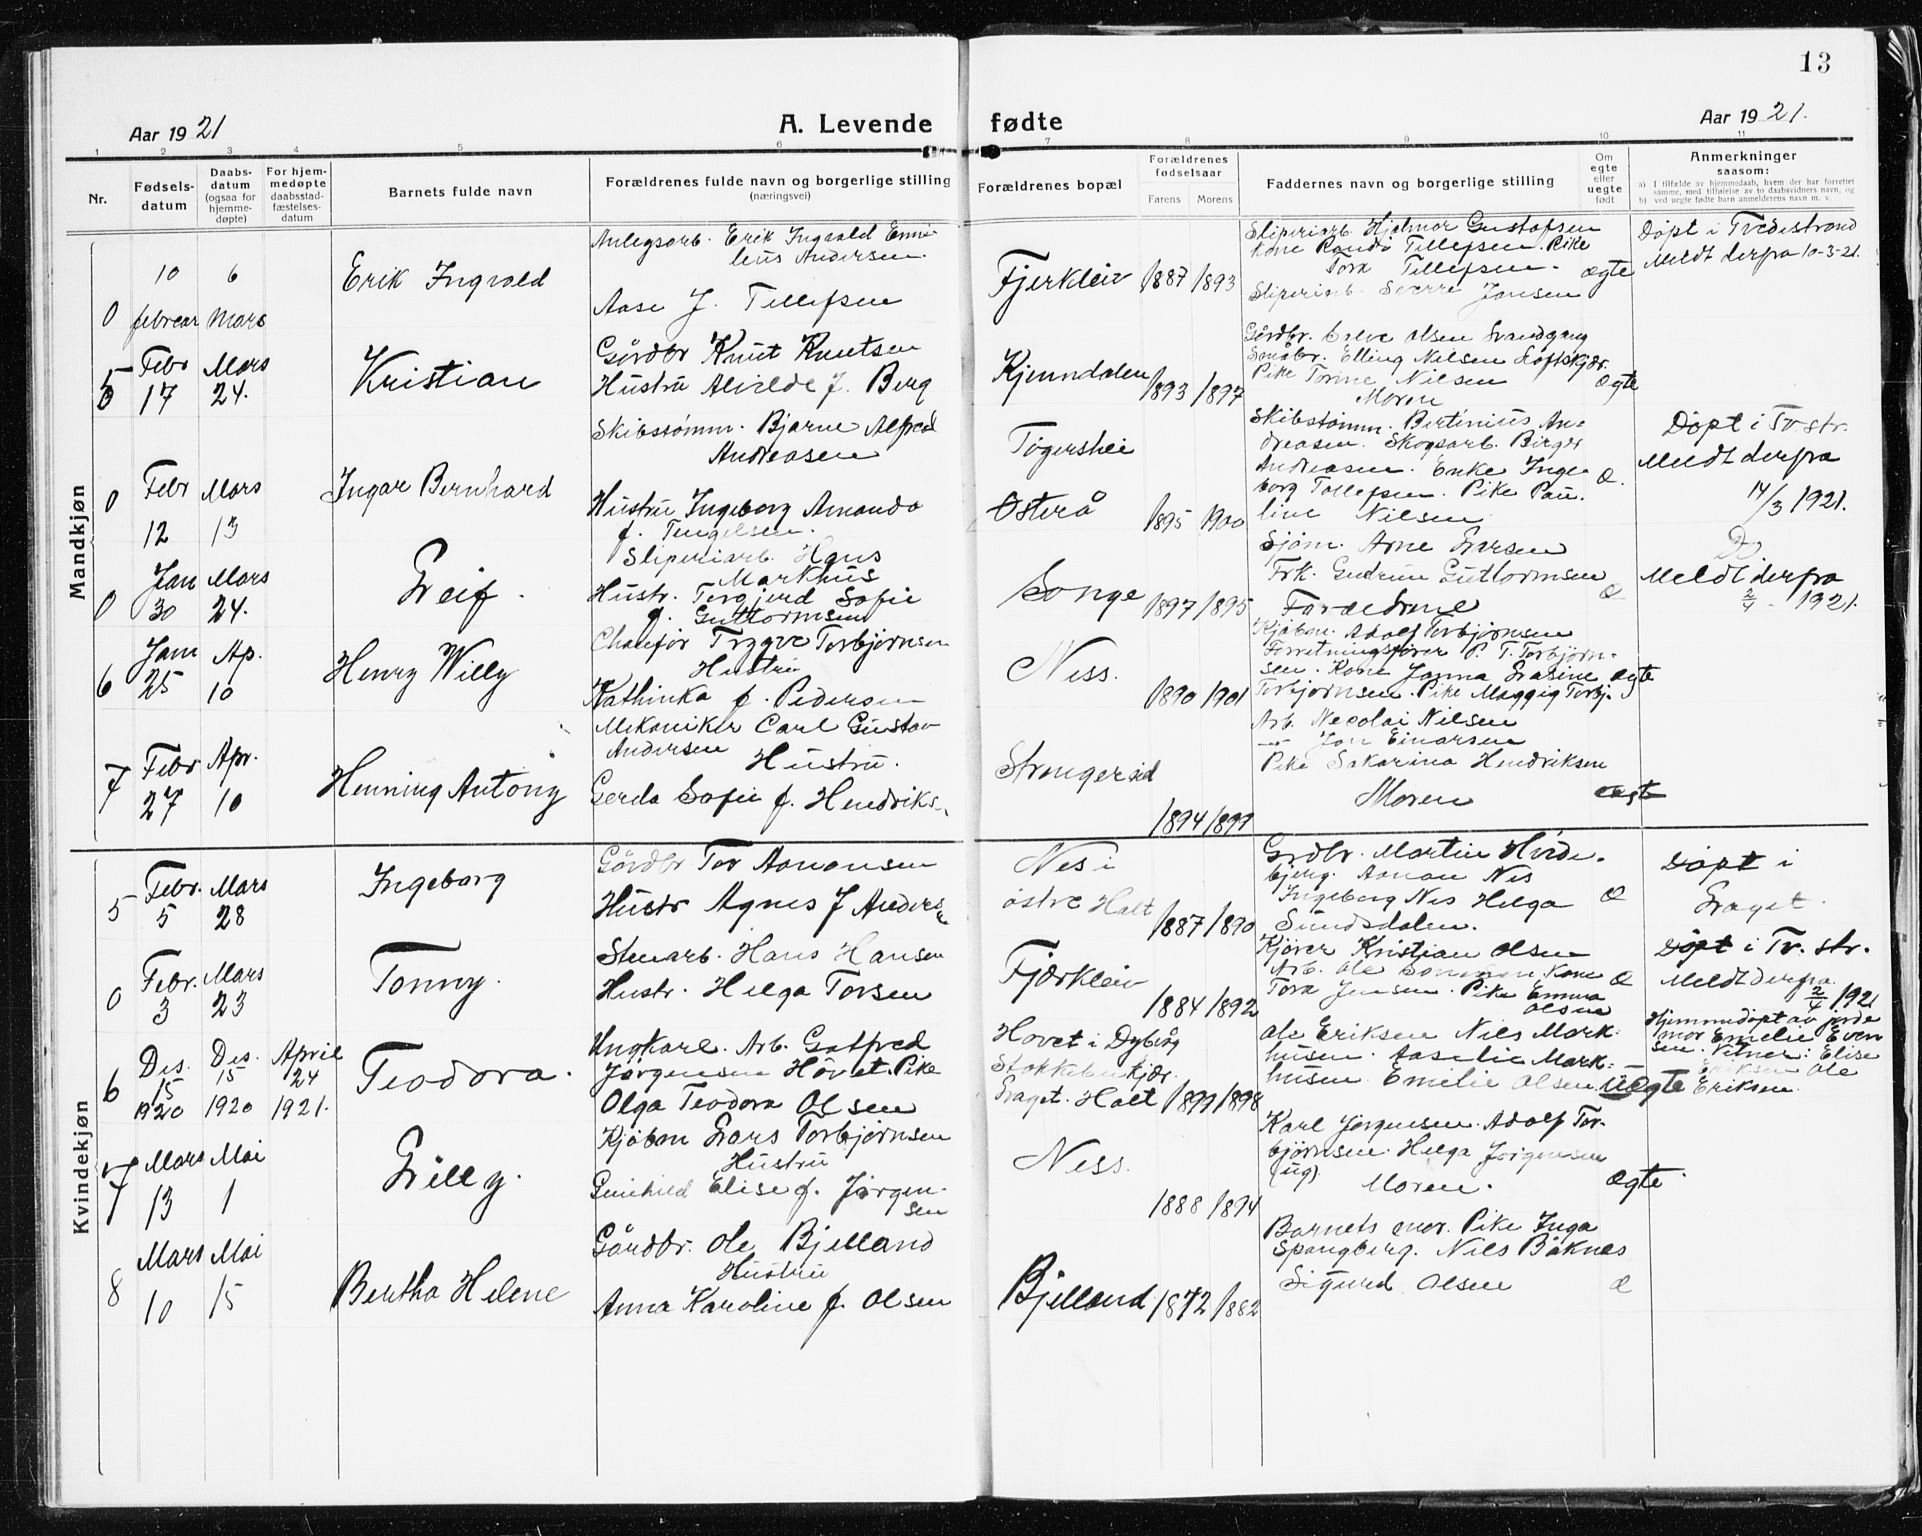 13
Aar 1921
A. Levende fødte
Aar 1921.
1 2 3 4 5 6 7 8 9 10 11
Nr.
Fødsels-
datum
Daabs-
datum
(ogsaa for
hjemme-
døpte)
For hjem-
medøpte
daabsstad-
fæstelses-
datum
Barnets fulde navn
Forældrenes fulde navn og borgerlige stilling
(næringsvei)
Forældrenes bopæl
Forældrenes
fødselsaar
Farens
Morens
Faddernes navn og borgerlige stilling
Om
egte
eller
uegte
født
Anmerkninger
saasom:
a) I tilfælde av hjemmedaab, hvem der har forrettet
samme, med tilføielse av to daabsvidners navn, og
b) ved uegte fødte barn anmelderens navn m. v.
Mandkjøn
0
10 februar
6 Mars
Erik Ingvald
Anlegsarb. Erik Ingvald Emi-
lius Andersen.
Aase f. Tellefsen
Fjerkleiv
1887 1893
Sliperiarb. Hjalmar Gustafsen
Kone Randi Tellefsen. Pike
Tora Tellefsen.
Sliperiarb. Sverre Jansen
ægte
Døpt i Tvedestrand
Meldt derfra 10-3-21.
5
Febr
17
Mars
24.
Kristian
Gårdbr Knut Knutsen
Hustru Alvilde f. Berg
Kjenndalen
1893 1897
Gårdbr. Olsen
Småbr. Elling Nilsen
Pike Torine Nilsen
Moren
ægte
0
Febr
12
Mars
13
Ingar Bernhard
Skibstømm. Bjarne Alfred
Andreasen
Hustru Ingeborg Amanda
f. Tengelsen.
Østerå
1895 1900
Skibstømm. Bertinius An-
dreasen. Skogsarb. Birger
Andreasen. Enke Inge-
borg Tallefsen. Pike Pau-
line Nilsen
Æ.
Døpt i Tv.str.
Meldt derfra
14/3 1921.
0
Jan
30
Mars
24.
Leif.
Sliperiarb. Hans
Markhus
Hustr. Torgjerd Sofie
f. Guttormsen
Songe
1897 1895
Sjøm. Arne Larsen
Frk. Gudrun Guttormsen
Forældrene
Æ
Do
Meldt derfra
2/4 - 1921.
6
Jan
25
Ap.
10
Henry Willy
Chauffør Trygve Torbjørnsen
Hustru
Kathinka f. Pedersen
Ness.
1890 1901
Kjøbm. Adolf Torbjørnsen
Forretningsfører P. T. Torbjørn-
sen. Kone Janna Lasine
Torbjørnsen. Pike Maggig Torbj.
ægte
7
Febr
27
Apr.
10
Henning Antony
Mekaniker Carl Gustav
Andersen
Hustru.
Gerda Sofie f. Hendriks.
1894 1899
Arb. Necolai Nilsen
— Jon Einarsen
Pike Sakarina Hendriksen
Moren
ægte
Kvindekjøn
5
Febr.
5
Mars
28
Ingeborg
Gårdbr Tor Aanonsen
Hustr Agnes f Anders.
Nes i
østre Holt
1887 1890
Grdbr. Martin Hvide-
bjerg. Aanon Nes
Ingeborg Nes Helga
Sundsdalen.
Æ
Døpt i
Laget.
0
Febr.
3
Mars
23
Tonny.
Stenarb. Hans Hansen
Hustr. Helga Torsen
Fjærkleiv
1884 1892
Kjører Kristian Olsen
Arb. Ole Kone
Tora Jensen. Pike Emma
Olsen
Æ
Døpt i Tv. str.
Meldt derfra
2/4 1921
6
Des.
15
1920
Des.
15
1920
April
24
1921.
Teodora.
Ungkarl. Arb. Gotfred
Jørgensen Hovet. Pike
Olga Teodora Olsen
Hovet i Dybvåg
Laget. Holt
1899 1898
Ole Eriksen Nils Mark-
husen. Aaselie Mark-
husen Emilie Olsen
Uegte
Hjemmedøpt av jorde
mor Emelie Even
sen. Vitner: Elise
Eriksen Ole
Eriksen.
7
Mars
13
Mai
1
Lilly.
Kjøbm Lars Torbjørnsen
Hustru
Gunhild Elise f. Jørgen-
sen
Ness.
1888 1894
Karl Jørgensen. Adolf Tor-
bjørnsen. Helga Jørgensen
(ug).
Moren.
Ægte.
8
Mars
10
Mai
15
Bertha Helene
Gårdbr. Ole Bjelland
Hustru
Anna Karoline f. Olsen
Bjelland
1872 1882
Barnets mor. Pike Inga
Spangberg. Nils Båknes
Sigurd Olsen
Æ